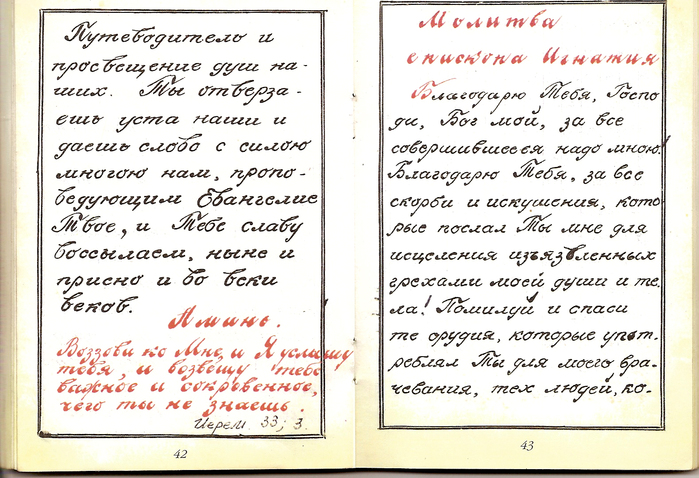 Путеводитель и
просвещение душ на-
ших. Ты отверза-
ешь уста наши и
даешь слово с силою
многою нам, пропо-
ведующим Евангелие
Твое, и Тебе славу
воссылаем, ныне и
присно и во веки
веков.
Аминь.
Воззови ко Мне, и Я услышу
тебя, и возвещу тебе
важное и сокровенное,
чего ты не знаешь.
Иерем. 33; 3.
42
Молитва
епископа Игнатия
Благодарю Тебя, Госпо
ди, Бог мой, за все
совершившееся надо мною!
Благодарю Тебя, за все
скорби и искушения, кото
рые послал Ты мне для
исцеления изъязвленных
грехами моей души и те.
ла! Помилуй и спаси
те орудия, которые упот.
реблял Ты для моего вра-
чевания, тех людей, ко-
43